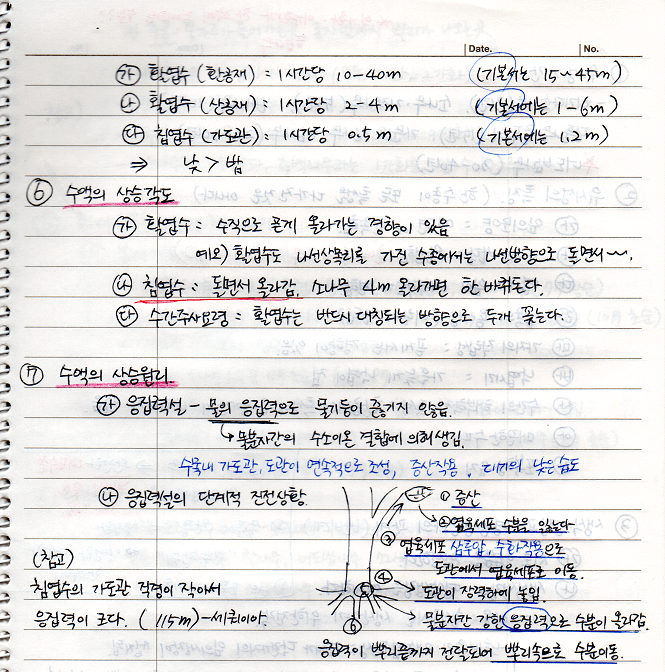 Date. No.
㉮ 활엽수 (환공재) : 1시간당 10-40m (기본서는 15~45m)
㉯ 활엽수 (산공재) : 1시간당 2-4m (기본서에는 1-6m)
㉰ 침엽수 (가도관) : 1시간당 0.5m (기본서에는 1.2m)
⇒ 낮 > 밤
⑥ 수액의 상승각도
㉮ 활엽수 : 수직으로 곧게 올라가는 경향이 있음
예외) 활엽수도 나선상목리를 가진 수종에서는 나선방향으로 돌면서~.
㉯ 침엽수 : 돌면서 올라감. 소나무 4m 올라가면 한 바퀴돈다.
㉰ 수간주사요령 : 활엽수는 반드시 대칭되는 방향으로 두개 꽂는다.
⑦ 수액의 상승원리.
㉮ 응집력설 - 물의 응집력으로 물기둥이 끊기지 않음.
↳ 물분자간의 수소이온 결합에 의해생김.
수목내 가도관, 도관이 연속적으로 조성, 증산작용, 대기의 낮은습도
㉯ 응집력설의 단계적 진전상황.
① 증산
② 엽육세포 수분을 잃는다
③ 엽육세포 삼투압, 수화작용으로
도관에서 엽육세포로 이동.
④ → 도관이 장력하에 놓임
⑤ → 물분자간 강한 응집력으로 수분이 올라감.
⑥
응집력이 뿌리끝까지 전달되어 뿌리속으로 수분이동.
(참고)
침엽수의 가도관 직경이 작아서
응집력이 크다. (115m)-세쿼이아.